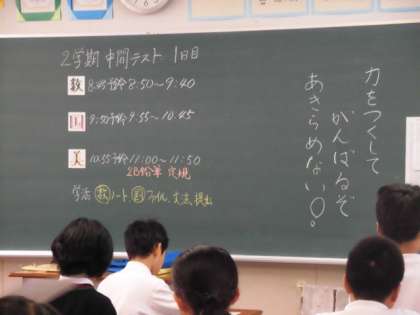 2学期 中間テスト 1日目
数 8:45予鈴 8:50~9:40
国 9:50予鈴 9:55~10:45
美 10:55予鈴 11:00~11:50
2B鉛筆 定規
学活 数ノート 国ファイル、文法 提出
力をつくして
がんばるぞ
あきらめないぞ。